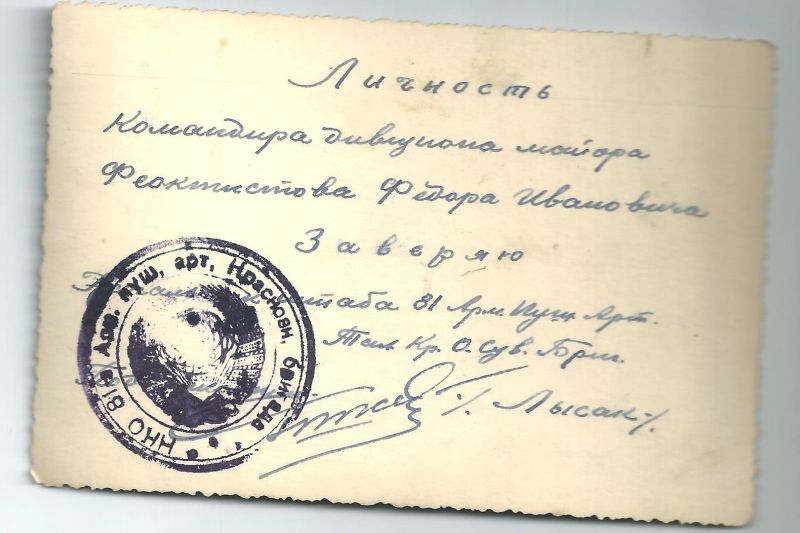 Личность
Командира дивизиона майора
Феоктистова Фёдора Ивановича
Заверяю
штаба 81 Арм. Пуш. Арт.
Кр. О. Сув. Бриг.
/ Лысак /.
ННО 81я Арм. пуш. арт. Краснозн. бригада